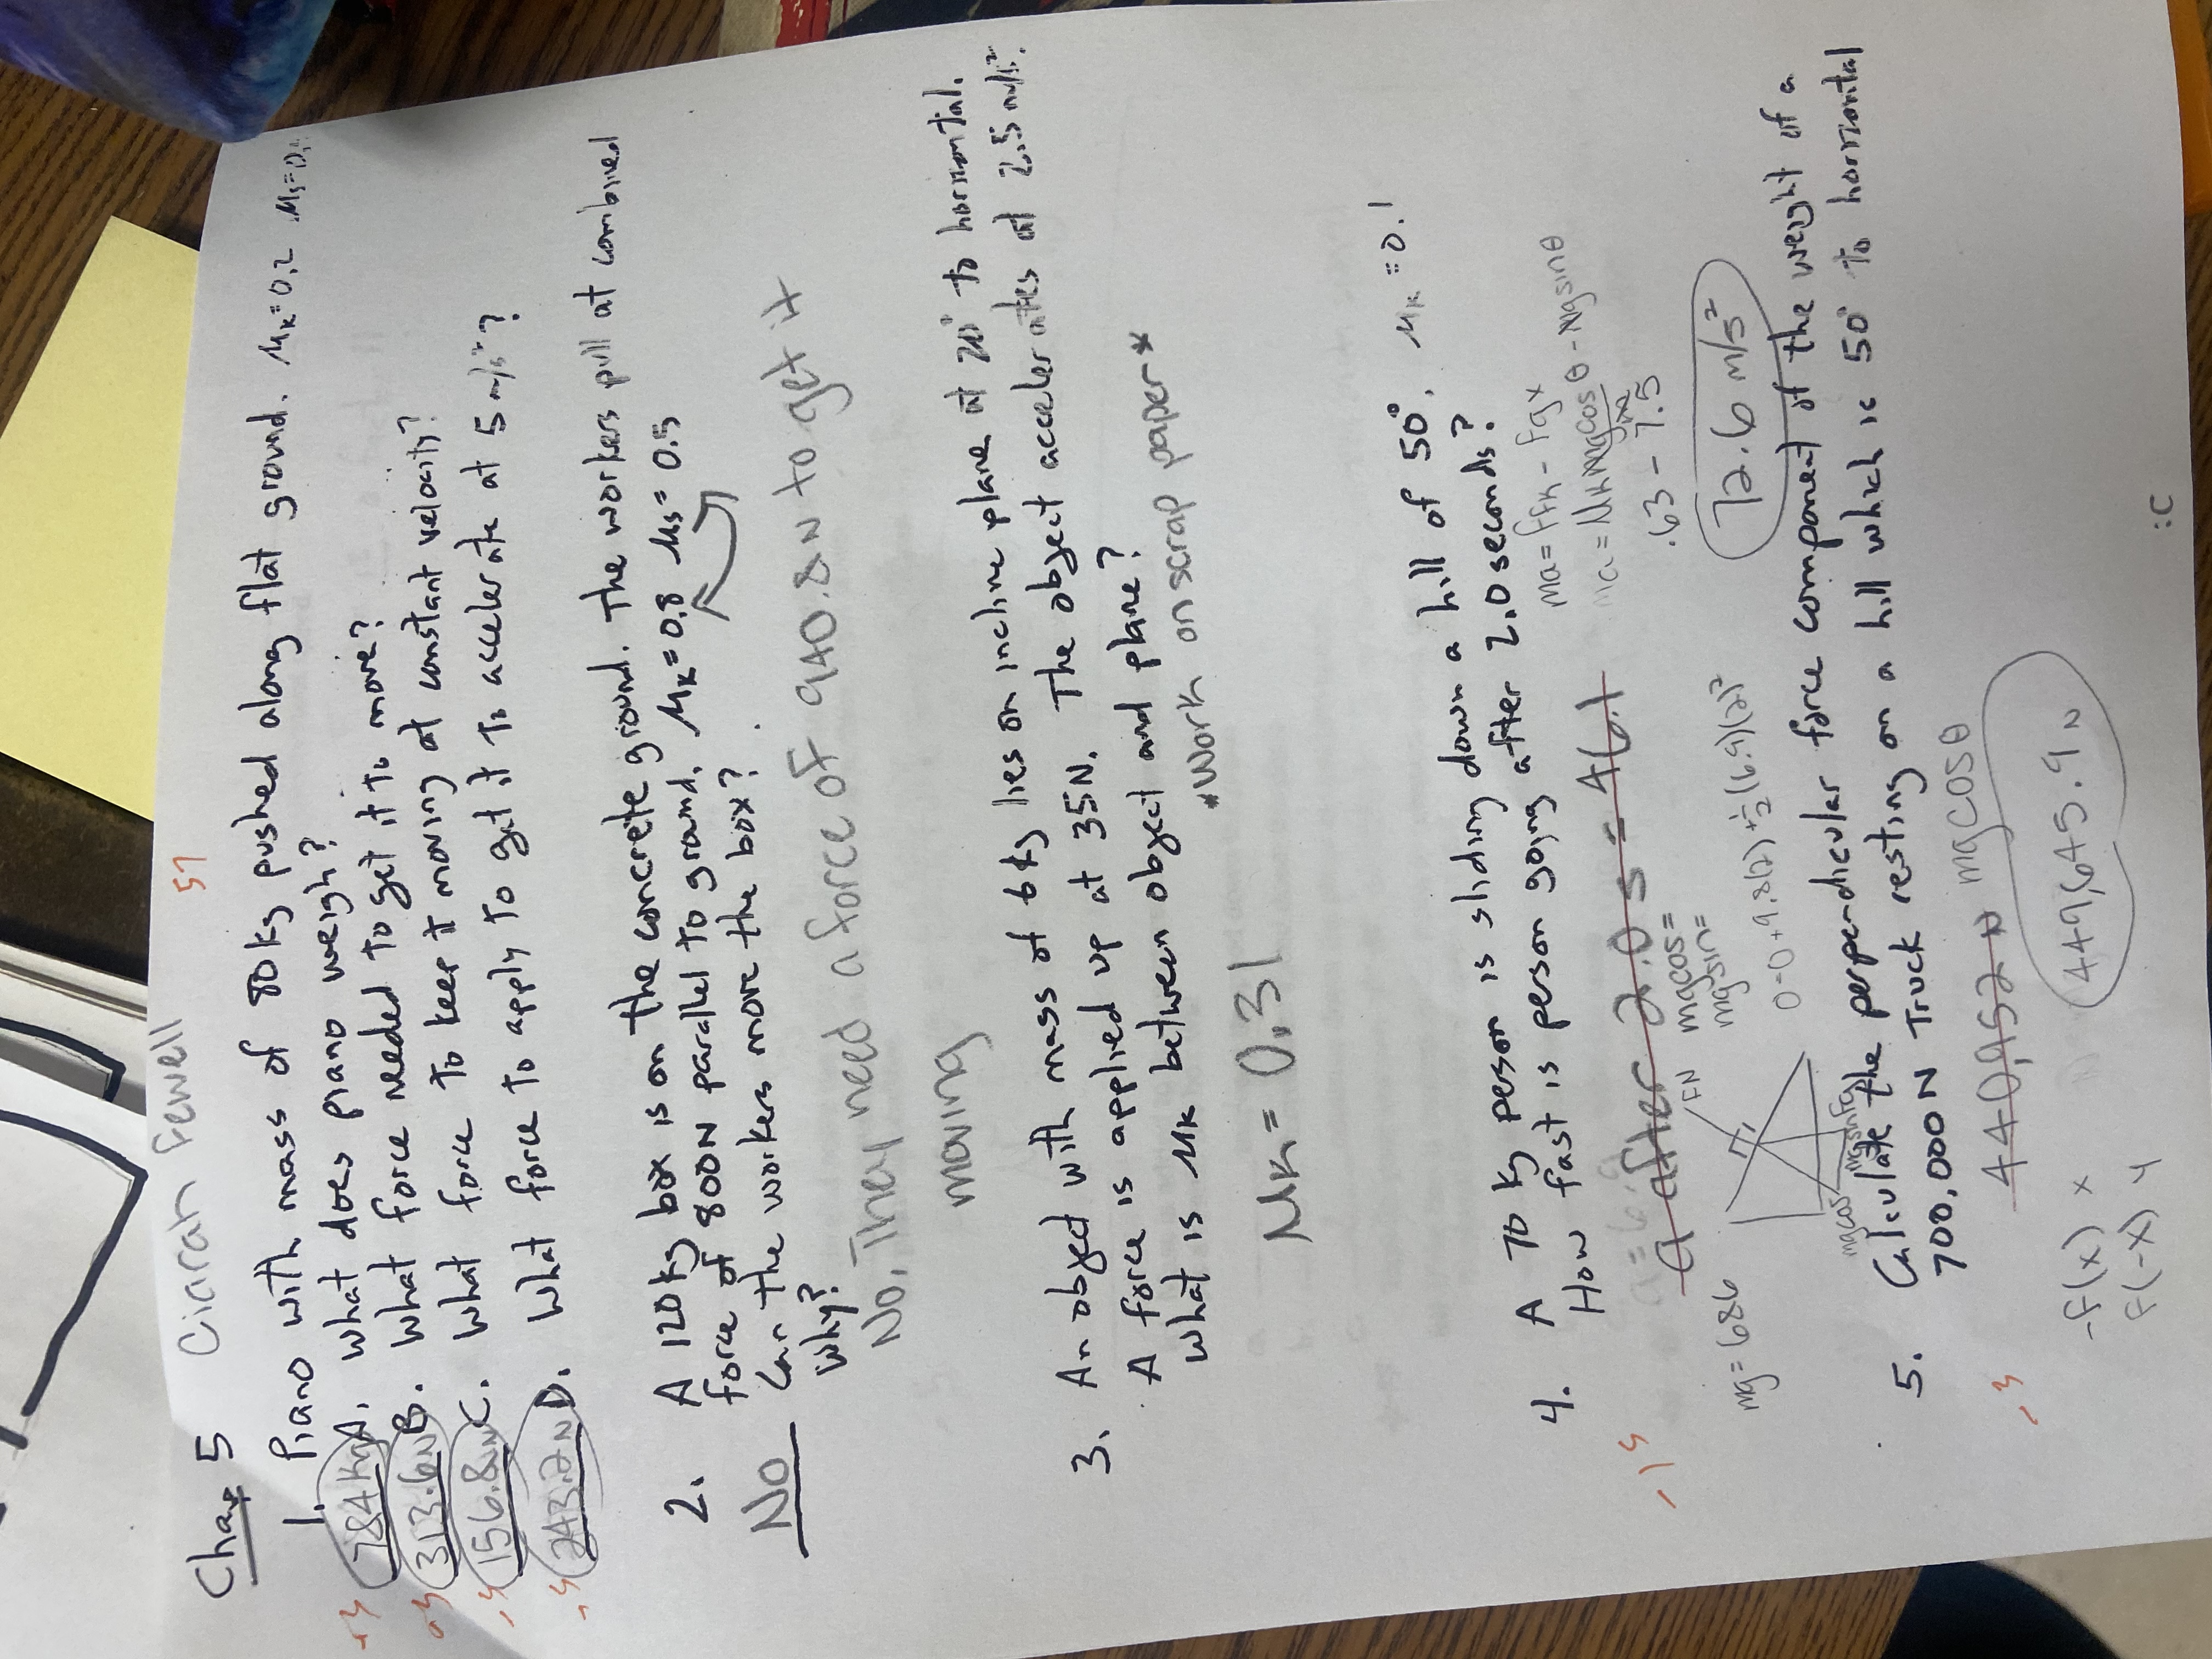 Chap 5 Ciarah Fewell 57
1. Piano with mass of 80 kg pushed along flat ground. μk=0.2 μs=0.
784 kg A. What does piano weigh?
313.6 N B. What force needed to get it to move?
156.8 N C. What force to keep it moving at constant velocity?
243.2 N D. What force to apply to get it to accelerate at 5 m/s²?
2. A 120 kg box is on the concrete ground. The workers pull at combined
force of 800N parallel to ground. μk=0.8 μs=0.5
No Can the workers move the box?
Why?
No. They need a force of 940.8 N to get it
moving
3. An object with mass of 6 kg lies on incline plane at 20° to horizontal.
A force is applied up at 35N. The object accelerates at 2.5 m/s².
What is μk between object and plane?
*Work on scrap paper*
μk = 0.31
4. A 70 kg person is sliding down a hill of 50°. μk=0.1
How fast is person going after 2.0 seconds?
a after 2.0 s = 46.1
ma = Ffk - Fgx
ma = μk mg cos θ - mg sin θ
.63 - 7.5
72.6 m/s²
mg = 686
FN
mgcos=
mgsin=
0=0+9.8(2)+½(6.9)(2)²
mgcos
mgsin
5. Calculate the perpendicular force component of the weight of a
700,000N Truck resting on a hill which is 50° to horizontal
440,952 N mgcosθ
449,645.9 N
-f(x) x
f(-x) y
:C